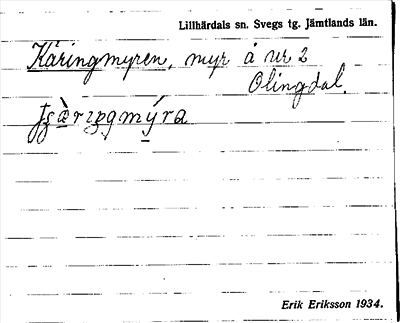 Lillhärdals sn. Svegs tg. Jämtlands län.
Käringmyren, myr å ur 2
Olingdal.
Erik Eriksson 1934.